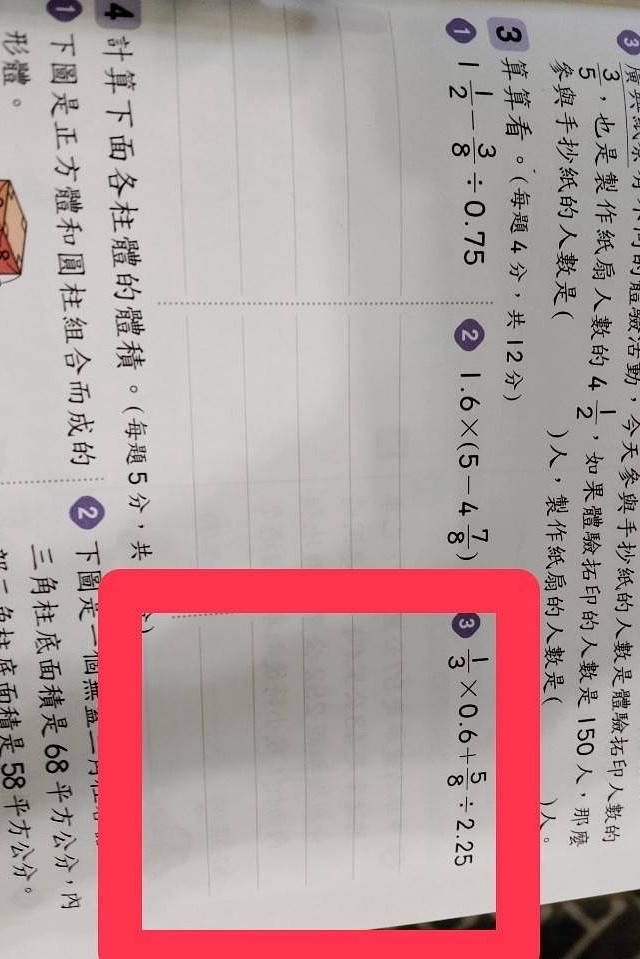 3 廣興紙寮有不同的體驗活動，今天參與手抄紙的人數是體驗拓印人數的
3/5，也是製作紙扇人數的 4 1/2，如果體驗拓印的人數是 150 人，那麼
參與手抄紙的人數是(　　)人，製作紙扇的人數是(　　)人。
3 算算看。(每題 4 分，共 12 分)
1 1 1/2 − 3/8 ÷ 0.75
2 1.6 × (5 − 4 7/8)
3 1/3 × 0.6 + 5/8 ÷ 2.25
4 計算下面各柱體的體積。(每題 5 分，共 分)
1 下圖是正方體和圓柱組合而成的
形體。
2 下圖是一個無蓋三角柱
三角柱底面積是 68 平方公分，內
部三角柱底面積是 58 平方公分。